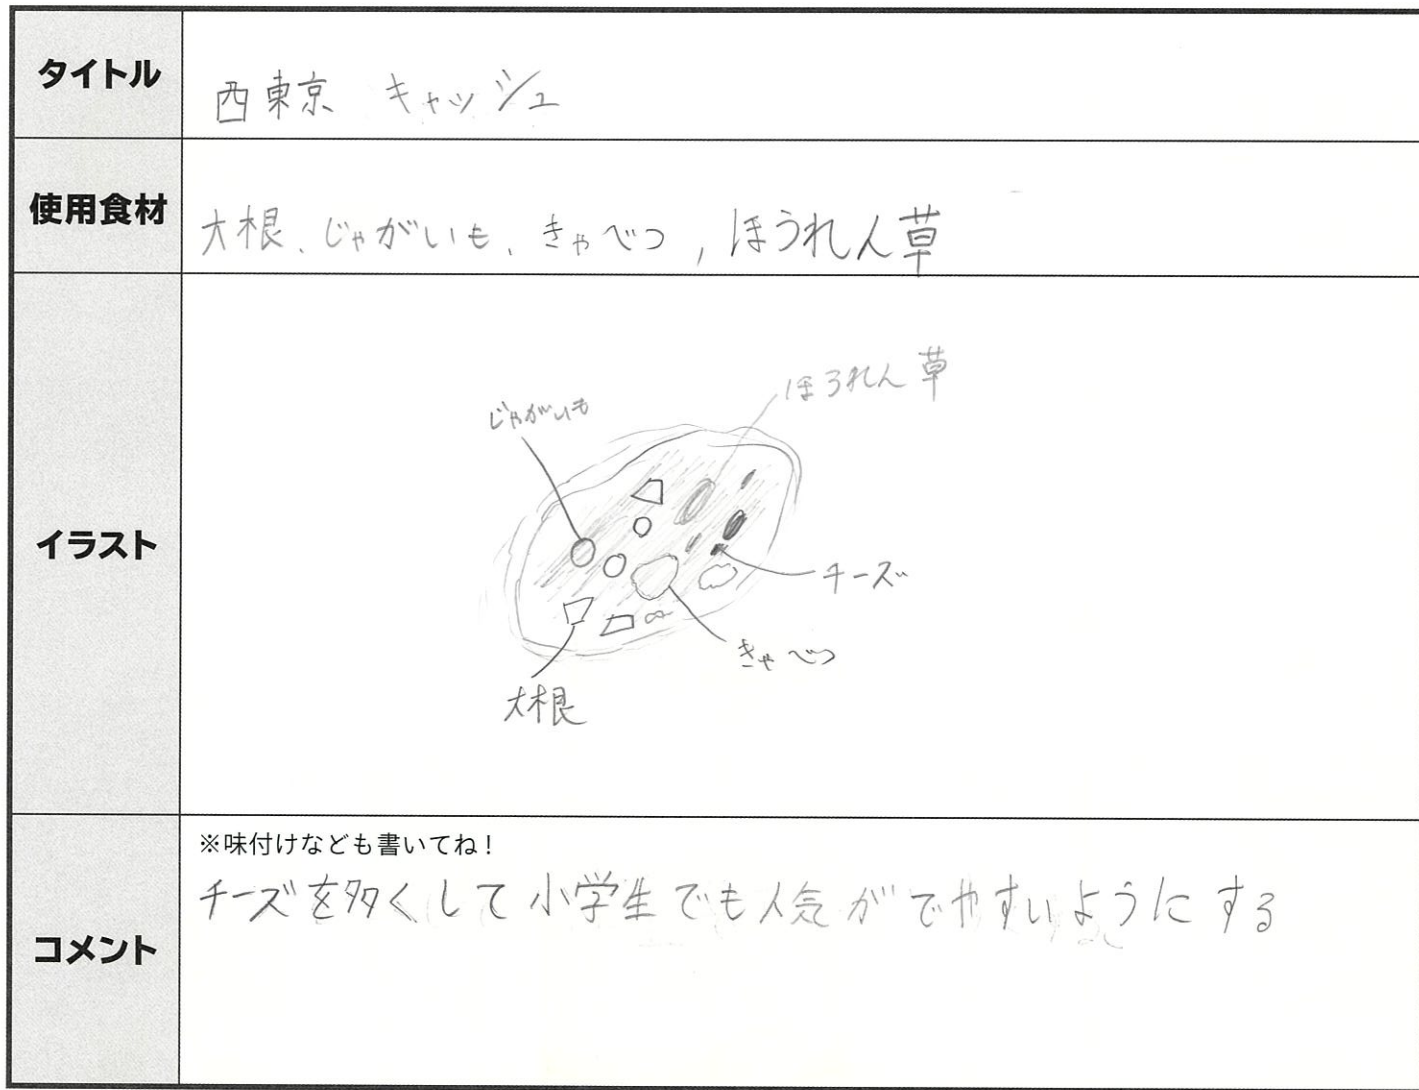 タイトル
西東京 キャッシュ
使用食材
大根、じゃがいも、きゃべつ,ほうれん草
イラスト
じゃがいも
ほうれん草
チーズ
きゃべつ
大根
コメント
※味付けなども書いてね!
チーズを多くして小学生でも人気がでやすいようにする